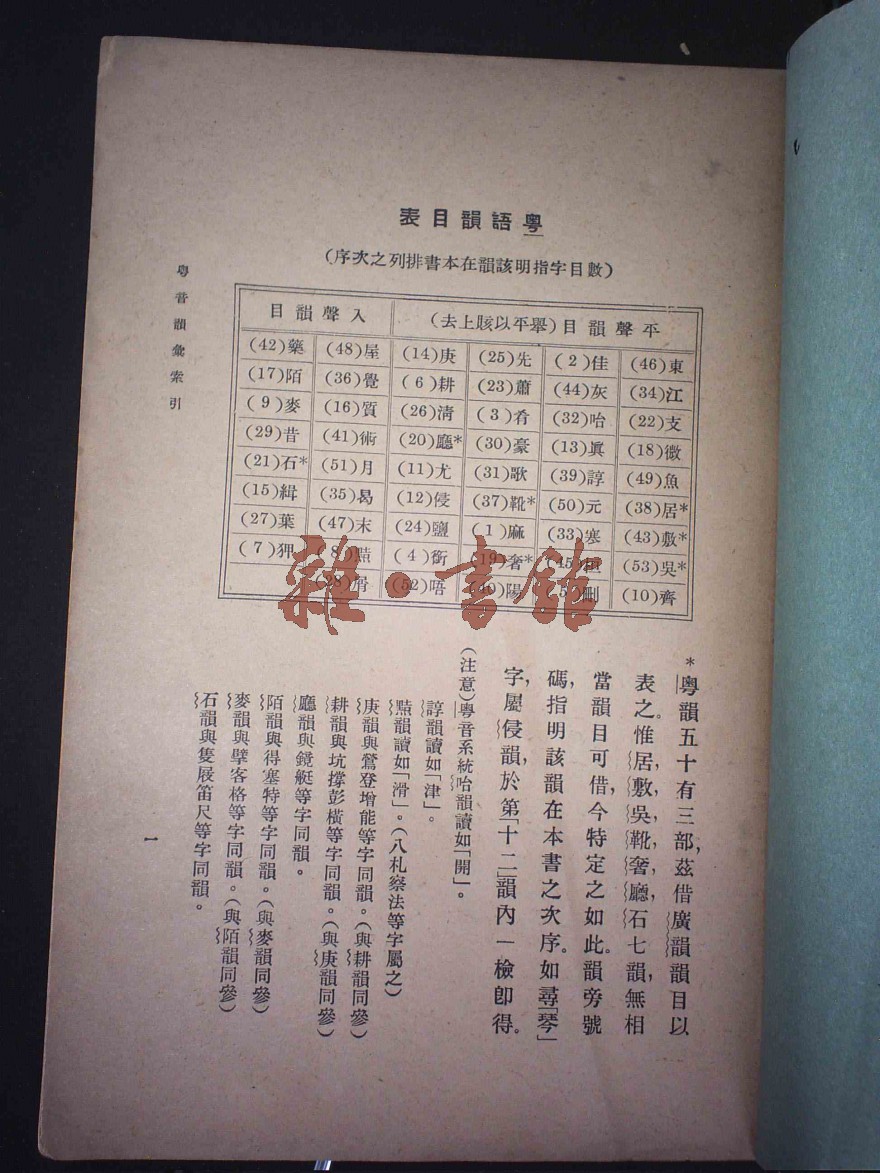 粵語韻目表
(數目字指明該韻在本書排列之次序)
平聲韻目(舉平以賅上去) 入聲韻目
東(46) 佳(2) 先(25) 庚(14) 屋(48) 藥(42)
江(34) 灰(44) 蕭(23) 耕(6) 覺(36) 陌(17)
支(22) 咍(32) 肴(3) 清(26) 質(16) 麥(9)
微(18) 眞(13) 豪(30) 廳*(20) 術(41) 昔(29)
魚(49) 諄(39) 歌(31) 尤(11) 月(51) 石*(21)
居*(38) 元(50) 靴*(37) 侵(12) 曷(35) 緝(15)
敷*(43) 寒(33) 麻(1) 鹽(24) 末(47) 葉(27)
吳*(53) 桓(45) 奢*(19) 銜(4) 黠(8) 狎(7)
齊(10) 刪(5) 陽(40) 唔(52) 屑(28)
*粵韻五十有三部,茲借廣韻韻目以
表之。惟居,敷,吳,靴,奢,廳,石七韻,無相
當韻目可借,今特定之如此。韻旁號
碼,指明該韻在本書之次序。如尋「琴」
字,屬侵韻,於第「十二」韻內一檢卽得。
(注意)粵音系統咍韻讀如「開」。
諄韻讀如「津」。
黠韻讀如「滑」。(八札察法等字屬之)
庚韻與鶯登增能等字同韻。(與耕韻同參)
耕韻與坑撐彭橫等字同韻。(與庚韻同參)
廳韻與鏡艇等字同韻。
陌韻與得塞特等字同韻。(與麥韻同參)
麥韻與擘客格等字同韻。(與陌韻同參)
石韻與隻屐笛尺等字同韻。
粵音韻彙索引
一
雜·書館